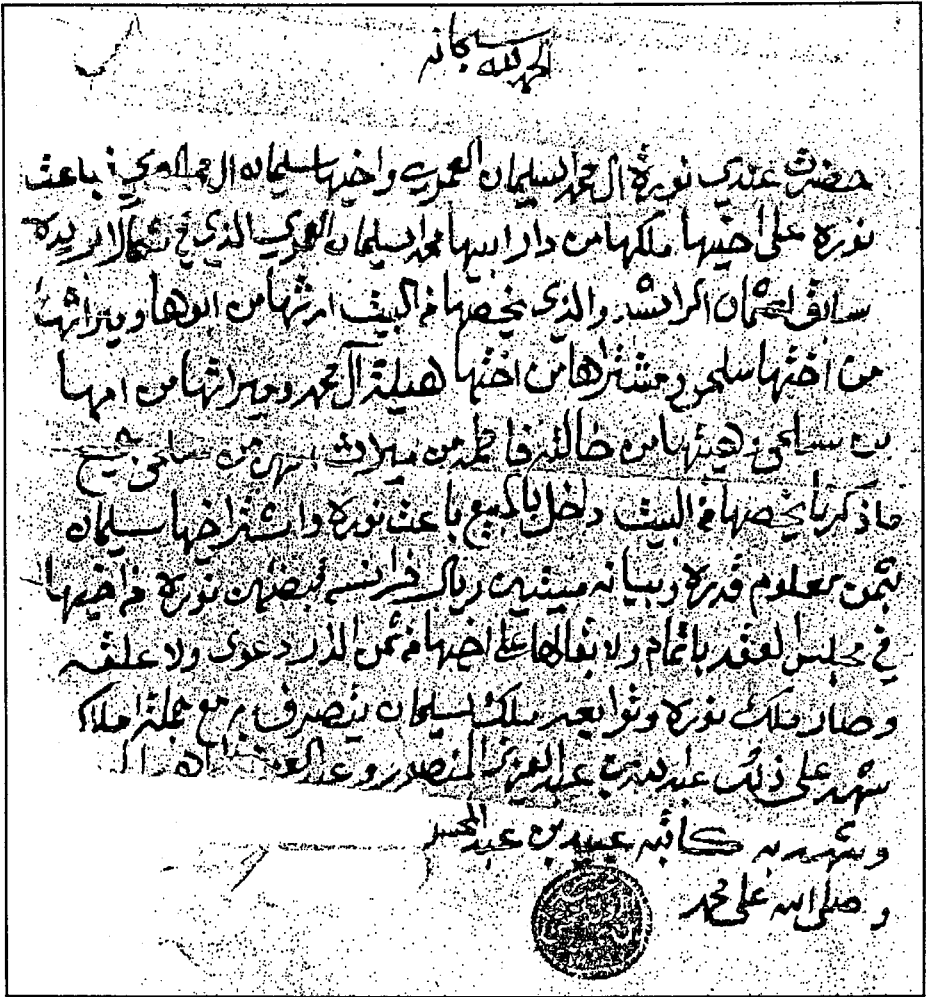 الحمد لله سبحانه
حضرت عندي نورة ال محمد السليمان العمري واخيها سليمان ال محمد العمري باعت
نورة على اخيها ملكها من دار ابيها محمد السليمان العمري الذي في شمال بريده
سابق لعثمان الراشد والذي يخصها من البيت ارثها من ابوها وميراثها
من اختها سلمى ومشتراها من اختها هيلة آل محمد وميراثها من امها
من خالته فاطمه من
ما ذكرنا يخصها في البيت داخل بالمبيع باعت نورة واشترا اخيها سليمان
بثمن معلوم قدره وبيانه ميتين ريال فرانسه قبضتهن نورة من اخيها
في مجلس العقد باتمام ولا بقا لها على اخيها من ثمن الدار دعوى ولا علقه
وصار ملك نورة وتوابعه ملك لسليمان يتصرف به مع جملة املاكه
شهد على ذلك عبد العزيز المنصور
وشهد به كاتبه عبيد بن عبد المحسن
وصلى الله على محمد